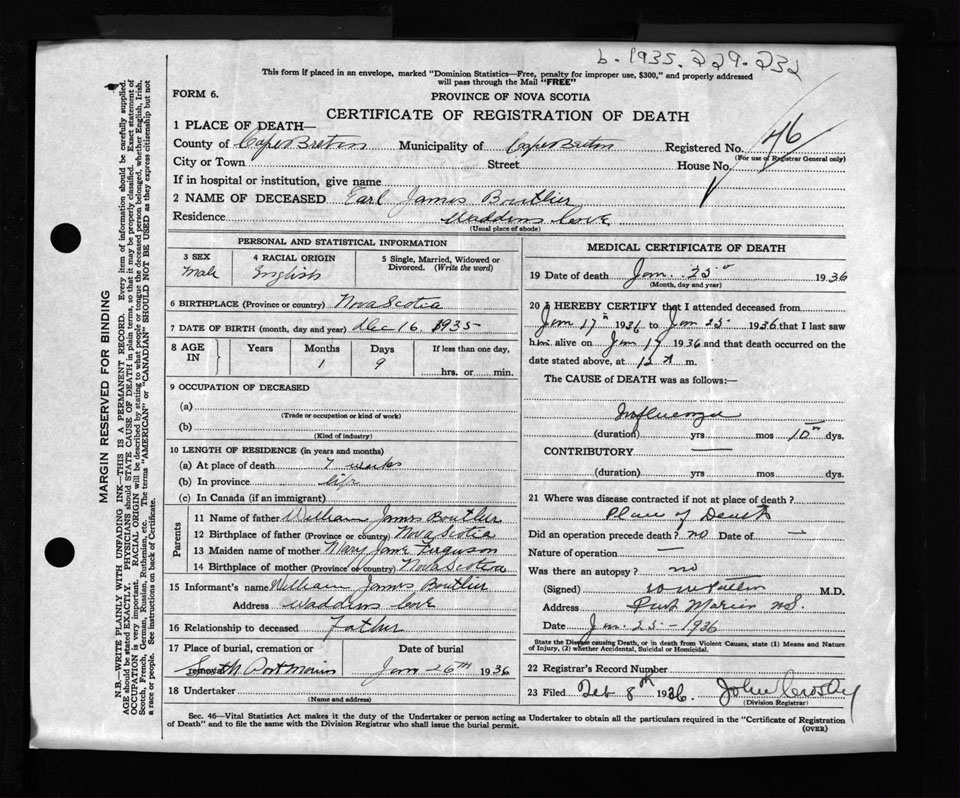 b. 1935. 229. 232
This form if placed in an envelope, marked "Dominion Statistics—Free, penalty for improper use, $300," and properly addressed
will pass through the Mail "FREE"
FORM 6.
PROVINCE OF NOVA SCOTIA
CERTIFICATE OF REGISTRATION OF DEATH
1 PLACE OF DEATH—
County of Cape Breton Municipality of Cape Breton Registered No. 46
(For use of Registrar General only)
City or Town Street House No.
If in hospital or institution, give name
2 NAME OF DECEASED Earl James Boutlier
Residence Waddens Cove
(Usual place of abode)
PERSONAL AND STATISTICAL INFORMATION
3 SEX 4 RACIAL ORIGIN 5 Single, Married, Widowed or
Divorced. (Write the word)
Male English
6 BIRTHPLACE (Province or country) Nova Scotia
7 DATE OF BIRTH (month, day and year) Dec 16, 1935
8 AGE IN Years Months Days If less than one day,
1 9 hrs. or min.
9 OCCUPATION OF DECEASED
(a)
(Trade or occupation or kind of work)
(b)
(Kind of industry)
10 LENGTH OF RESIDENCE (in years and months)
(a) At place of death 7 weeks
(b) In province life
(c) In Canada (if an immigrant)
Parents
11 Name of father William James Boutlier
12 Birthplace of father (Province or country) Nova Scotia
13 Maiden name of mother Mary Jane Ferguson
14 Birthplace of mother (Province or country) Nova Scotia
15 Informant's name William James Boutlier
Address Waddens Cove
16 Relationship to deceased Father
17 Place of burial, cremation or Date of burial
removal South Port Morien Jan 26th 1936
18 Undertaker
(Name and address)
MEDICAL CERTIFICATE OF DEATH
19 Date of death Jan. 25 1936
(Month, day and year)
20 I HEREBY CERTIFY that I attended deceased from
Jan 17th 1936 to Jan 25 1936 that I last saw
him alive on Jan 17 1936 and that death occurred on the
date stated above, at 12 A m.
The CAUSE of DEATH was as follows:—
Influenza
(duration) yrs mos 10 dys.
CONTRIBUTORY —
(duration) yrs mos dys.
21 Where was disease contracted if not at place of death?
Place of Death
Did an operation precede death? no Date of —
Nature of operation —
Was there an autopsy? no
(Signed) M.D.
Address Port Morien N.S.
Date Jan. 25 - 1936
State the Disease causing Death, or in death from Violent Causes, state (1) Means and Nature
of Injury, (2) whether Accidental, Suicidal or Homicidal.
22 Registrar's Record Number
23 Filed Feb 8th 1936. John Crosby
(Division Registrar)
Sec. 46—Vital Statistics Act makes it the duty of the Undertaker or person acting as Undertaker to obtain all the particulars required in the "Certificate of Registration
of Death" and to file the same with the Division Registrar who shall issue the burial permit.
(OVER)
MARGIN RESERVED FOR BINDING
N.B.—WRITE PLAINLY WITH UNFADING INK—THIS IS A PERMANENT RECORD. Every item of information should be carefully supplied.
AGE should be stated EXACTLY. PHYSICIANS should STATE CAUSE OF DEATH in plain terms, so that it may be properly classified. Exact statement of
OCCUPATION is very important. RACIAL ORIGIN will be described by stating to what people or tongue the deceased person belonged, whether English, Irish,
Scotch, French, German, Russian, Ruthenian, etc. The terms "AMERICAN" or "CANADIAN" SHOULD NOT BE USED as they express citizenship but not
a race or people. See instructions on back of Certificate.